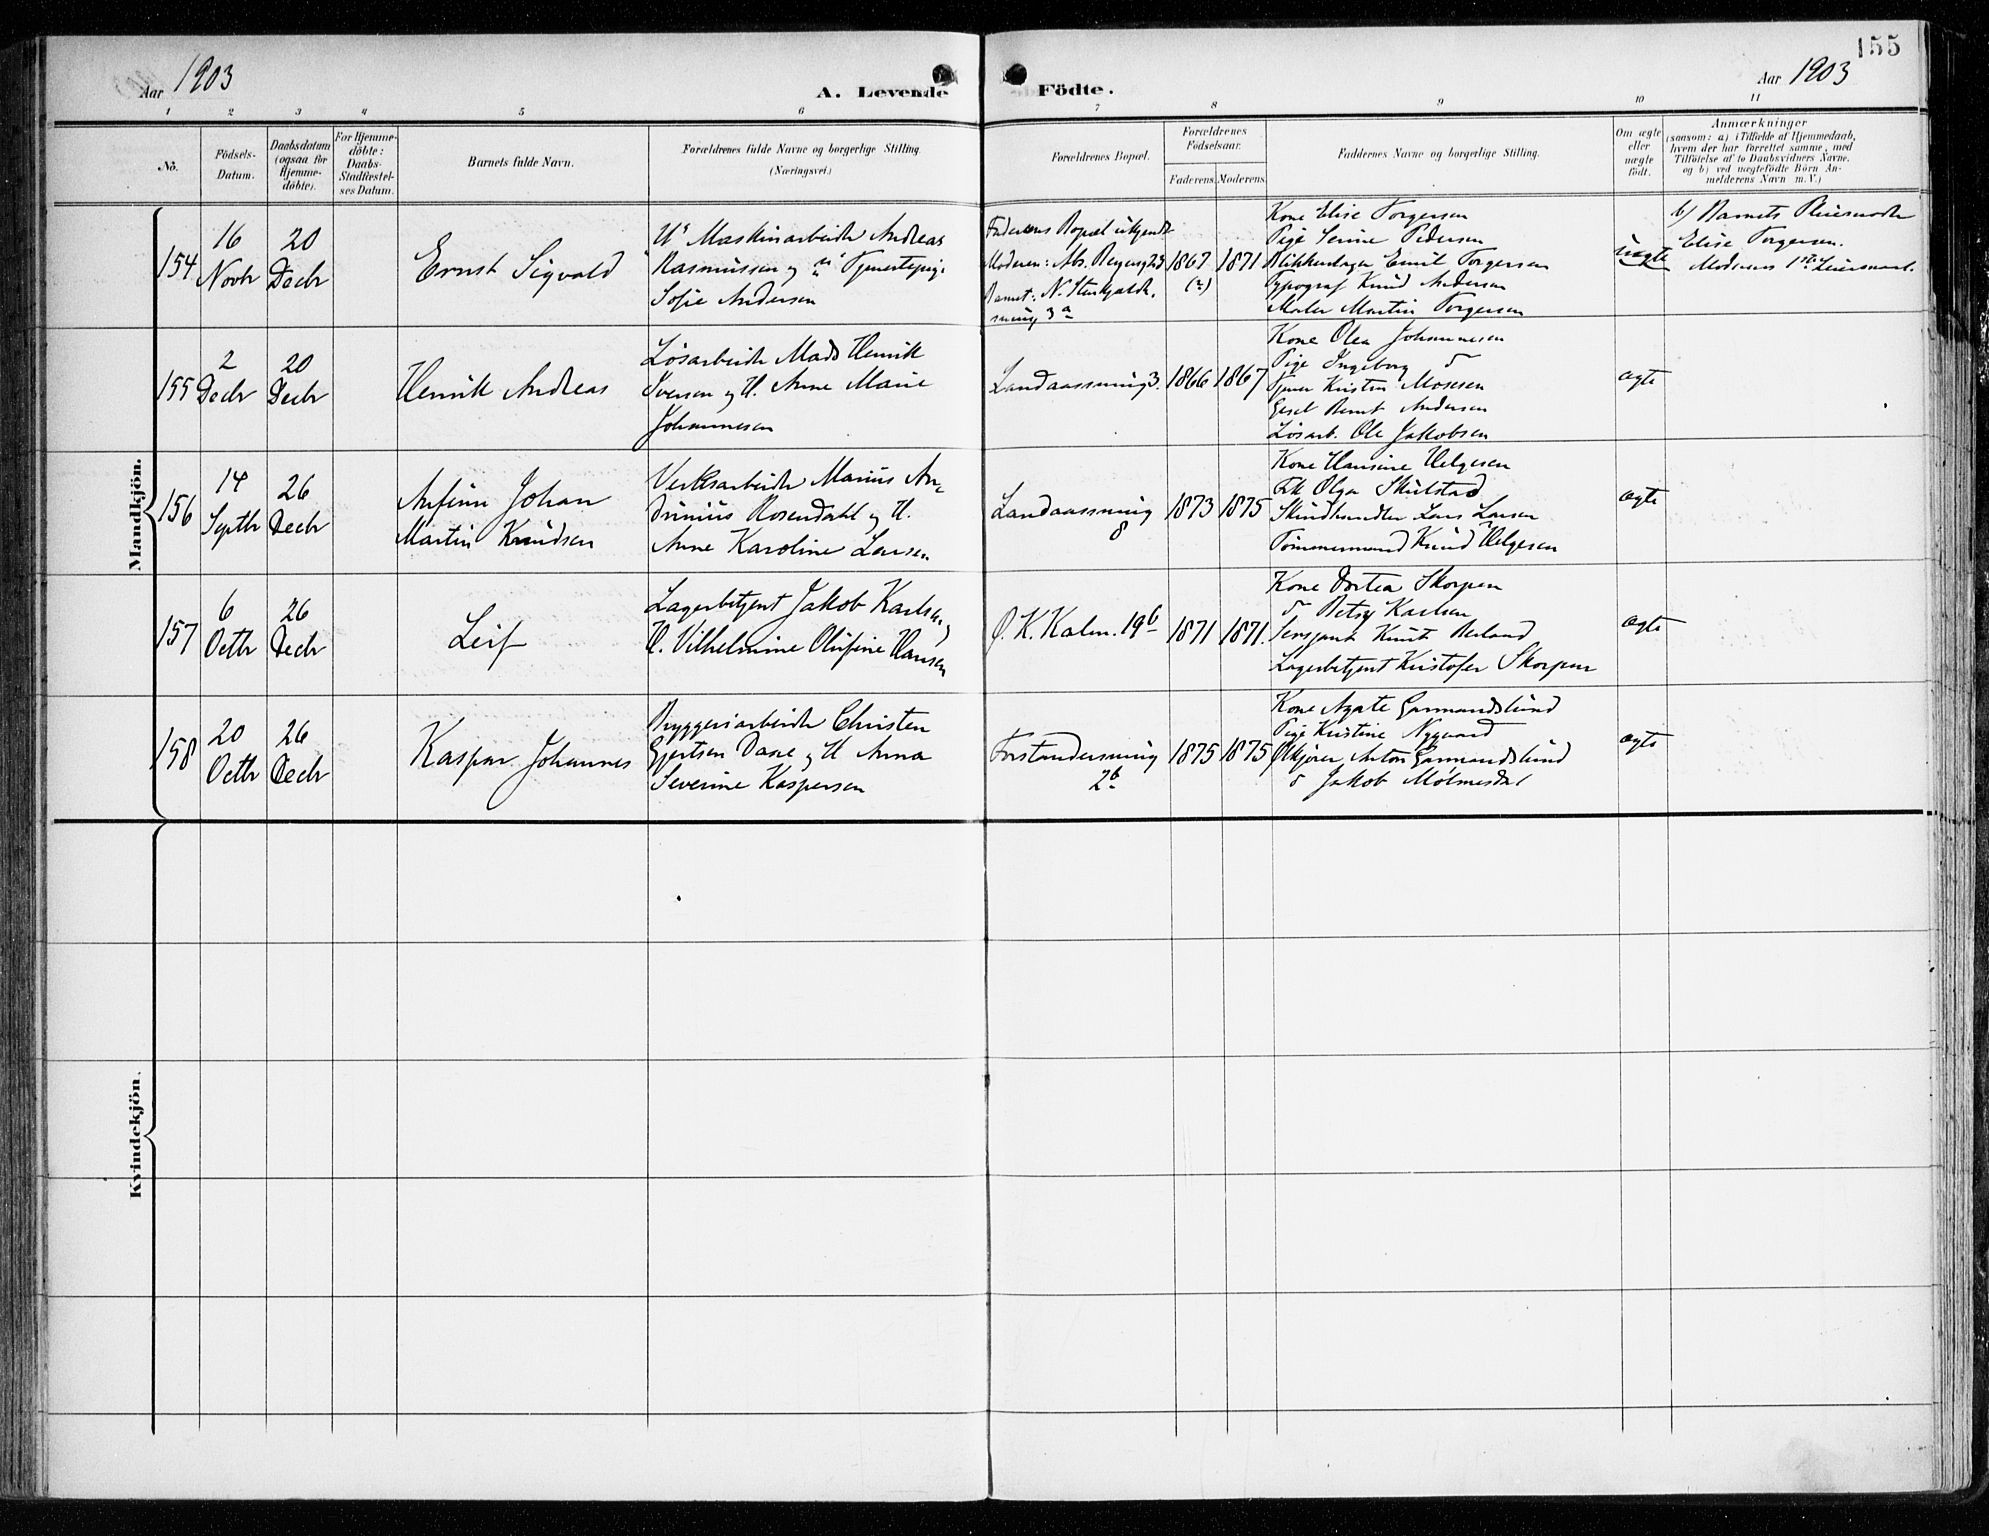 155
Aar 1903
A. Levende Födte.
Aar 1903
1 2 3 4 5 6 7 8 9 10 11
No.
Födsels-
Datum.
Daabsdatum
(ogsaa for
Hjemme-
döbte).
For Hjemme-
döbte:
Daabs-
Stadfæstel-
ses Datum.
Barnets fulde Navn.
Forældrenes fulde Navne og borgerlige Stilling.
(Næringsvei.)
Forældrenes Bopæl.
Forældrenes
Födselsaar.
Faderens. Moderens.
Faddernes Navne og borgerlige Stilling.
Om ægte
eller
uægte
födt.
Anmærkninger
(saasom: a) i Tilfælde af Hjemmedaab,
hvem der har forrettet samme, med
Tilföielse af to Daabsvidners Navne,
og b) ved uægtefödte Börn An-
melderens Navn m. V.)
Mandkjön.
154
16
Novbr
20
Decbr
Ernst Sigvald
Maskinarbeider Andreas
Rasmussen og Tjenestepige
Sofie Andersen
Faderens Bopæl ukjendt
Moderen:
Barnet:
3a
1867
(?)
1871
Kone Elise Torgersen
Pige Serine Pedersen
Blikkenslager Emil Torgersen
Typograf Knud Andersen
Maler Martin Torgersen
uægte
b) Barnets Pleiemoder
Elise Torgersen.
Moderens 1ste Leiermaal.
155
2
Decbr
20
Decbr
Henrik Andreas
Løsarbeider Mads Henrik
Iversen og H. Anne Marie
Johannesen
Landaassmug 3.
1866
1867
Kone Olea Johannesen
Pige Ingeborg
Kristen Mosesen
Bernt Andersen
Løsarb. Ole Jakobsen
ægte
156
14
Septbr
26
Decbr
Arfinn Johan
Martin Knudsen
Verksarbeider Marius An-
Rosendahl og H.
Anne Karoline Larsen
Landaassmug
8
1873
1875
Kone Hansine Helgesen
Frk Olga Skulstad
Skindhandler Lars Larsen
Tømmermand Knud Helgesen
ægte
157
6
Octbr
26
Decbr
Leif
Lagerbetjent Jakob Karlsen og
H. Vilhelmine Olufine Hansen
Ø. K. Kalm. 19b
1871
1871.
Kone Dortea Skorpen
Betsy Karlsen
Sersjant Knut Berland
Lagerbetjent Kristofer Skorpen
ægte
158
20
Octbr
26
Decbr
Kaspar Johannes
Bryggeriarbeider Christen
Gjertsen Dane og H Anna
Severine Kaspersen
Forstandersmug
2b
1875
1875
Kone Agate Garmandslund
Pige Kristine Nygaard
Ølkjører Anton Garmandslund
Jakob Mølmesdal
ægte
Kvindekjön.